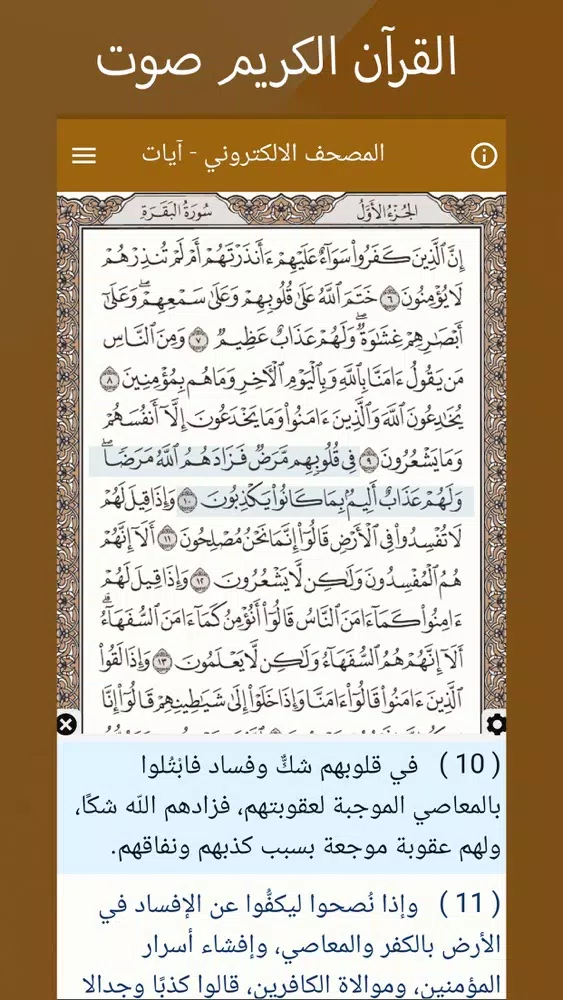 القرآن الكريم صوت
المصحف الالكتروني - آيات
الجزء الأول
سورة البقرة
إِنَّ ٱلَّذِينَ كَفَرُوا۟ سَوَآءٌ عَلَيْهِمْ ءَأَنذَرْتَهُمْ أَمْ لَمْ تُنذِرْهُمْ
لَا يُؤْمِنُونَ ٦ خَتَمَ ٱللَّهُ عَلَىٰ قُلُوبِهِمْ وَعَلَىٰ سَمْعِهِمْ ۖ وَعَلَىٰٓ
أَبْصَٰرِهِمْ غِشَٰوَةٌ ۖ وَلَهُمْ عَذَابٌ عَظِيمٌ ٧ وَمِنَ ٱلنَّاسِ
مَن يَقُولُ ءَامَنَّا بِٱللَّهِ وَبِٱلْيَوْمِ ٱلْءَاخِرِ وَمَا هُم بِمُؤْمِنِينَ ٨
يُخَٰدِعُونَ ٱللَّهَ وَٱلَّذِينَ ءَامَنُوا۟ وَمَا يَخْدَعُونَ إِلَّآ أَنفُسَهُمْ
وَمَا يَشْعُرُونَ ٩ فِى قُلُوبِهِم مَّرَضٌ فَزَادَهُمُ ٱللَّهُ مَرَضًا ۖ
وَلَهُمْ عَذَابٌ أَلِيمٌۢ بِمَا كَانُوا۟ يَكْذِبُونَ ١٠ وَإِذَا قِيلَ لَهُمْ
لَا تُفْسِدُوا۟ فِى ٱلْأَرْضِ قَالُوٓا۟ إِنَّمَا نَحْنُ مُصْلِحُونَ ١١ أَلَآ إِنَّهُمْ
هُمُ ٱلْمُفْسِدُونَ وَلَٰكِن لَّا يَشْعُرُونَ ١٢ وَإِذَا قِيلَ لَهُمْ
ءَامِنُوا۟ كَمَآ ءَامَنَ ٱلنَّاسُ قَالُوٓا۟ أَنُؤْمِنُ كَمَآ ءَامَنَ ٱلسُّفَهَآءُ ۗ
أَلَآ إِنَّهُمْ هُمُ ٱلسُّفَهَآءُ وَلَٰكِن لَّا يَعْلَمُونَ ١٣ وَإِذَا لَقُوا۟
ٱلَّذِينَ ءَامَنُوا۟ قَالُوٓا۟ ءَامَنَّا وَإِذَا خَلَوْا۟ إِلَىٰ شَيَٰطِينِهِمْ قَالُوٓا۟ إِنَّا
( 10 ) في قلوبهم شكٌّ وفساد فابْتُلوا
بالمعاصي الموجبة لعقوبتهم، فزادهم الله شكًا،
ولهم عقوبة موجعة بسبب كذبهم ونفاقهم.
( 11 ) وإذا نُصحوا ليكفُّوا عن الإفساد في
الأرض بالكفر والمعاصي، وإفشاء أسرار
المؤمنين، وموالاة الكافرين، قالوا كذبًا وجدالا